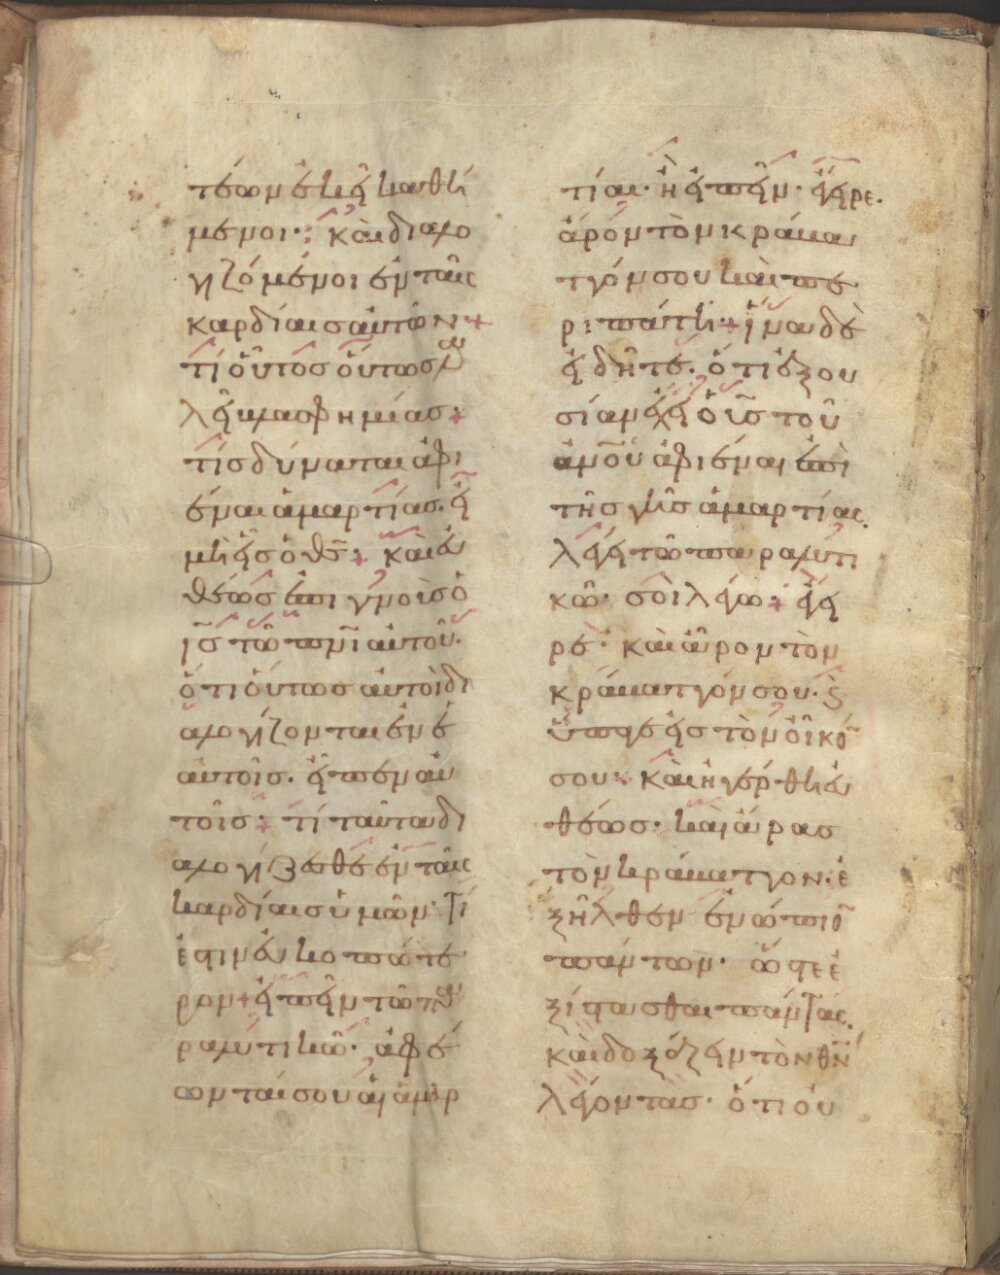 τέων ἐκεῖ καθή
μενοι· καὶ διαλο
γιζόμενοι ἐν ταῖς
καρδίαις αὐτῶν +
τί οὗτος οὕτως λα
λεῖ βλασφημίας +
τίς δύναται ἀφι
έναι ἁμαρτίας. εἰ
μὴ εἷς ὁ θς̅ + καὶ εὐ
θέως ἐπιγνοὺς ὁ
ις̅ τῶ πνι̅ αὐτοῦ·
ὅτι οὕτως αὐτοὶ δι
αλογίζονται ἐν ἑ
αυτοῖς. εἶπεν αὐ
τοῖς + τί ταῦτα δι
αλογίζεσθε ἐν ταῖς
καρδίαις ὑμῶν· τί
ἐστιν εὐκοπώτε
ρον + εἰπεῖν τῶ πα
ραλυτικῶ· ἀφέ
ωνταί σου αἱ ἁμαρ
τίαι· ἢ εἰπεῖν· ἔγειρε.
ἆρόν τὸν κράβα
τόν σου καὶ πε
ριπάτει + ἵνα δὲ
εἰδῆτε. ὅτι ἐξου
σίαν ἔχει ὁ υς̅ τοῦ
ἀνο̅υ ἀφιέναι ἐπὶ
τῆς γῆς ἁμαρτίας.
λέγει τῶ παραλυτι
κῶ· σοὶ λέγω + ἔγει
ρε· καὶ ἆρον τὸν
κράβατόν σου· καὶ
ὕπαγε εἰς τὸν οἶκό
σου + καὶ ἠγέρθη εὐ
θέως· καὶ ἄρας
τὸν κράβατον· ἐ
ξῆλθεν ἐνώπιον
πάντων· ὥστε ἐ
ξίστασθαι πάντας.
καὶ δοξάζειν τὸν θν̅
λέγοντας· ὅτι οὐ